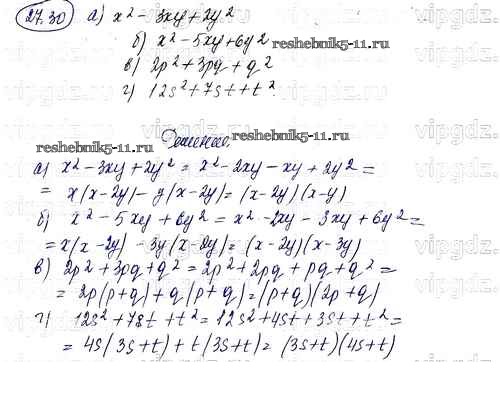 27.30 а) x² - 3xy + 2y²
б) x² - 5xy + 6y²
reshebnik5-11.ru
в) 2p² + 3pq + q²
г) 12s² + 7st + t².
reshebnik5-11.ru
Решение.
а) x² - 3xy + 2y² = x² - 2xy - xy + 2y² =
= x(x - 2y) - y(x - 2y) = (x - 2y)(x - y)
б) x² - 5xy + 6y² = x² - 2xy - 3xy + 6y² =
= x(x - 2y) - 3y(x - 2y) = (x - 2y)(x - 3y)
в) 2p² + 3pq + q² = 2p² + 2pq + pq + q² =
= 2p(p + q) + q(p + q) = (p + q)(2p + q)
г) 12s² + 7st + t² = 12s² + 4st + 3st + t² =
= 4s(3s + t) + t(3s + t) = (3s + t)(4s + t)